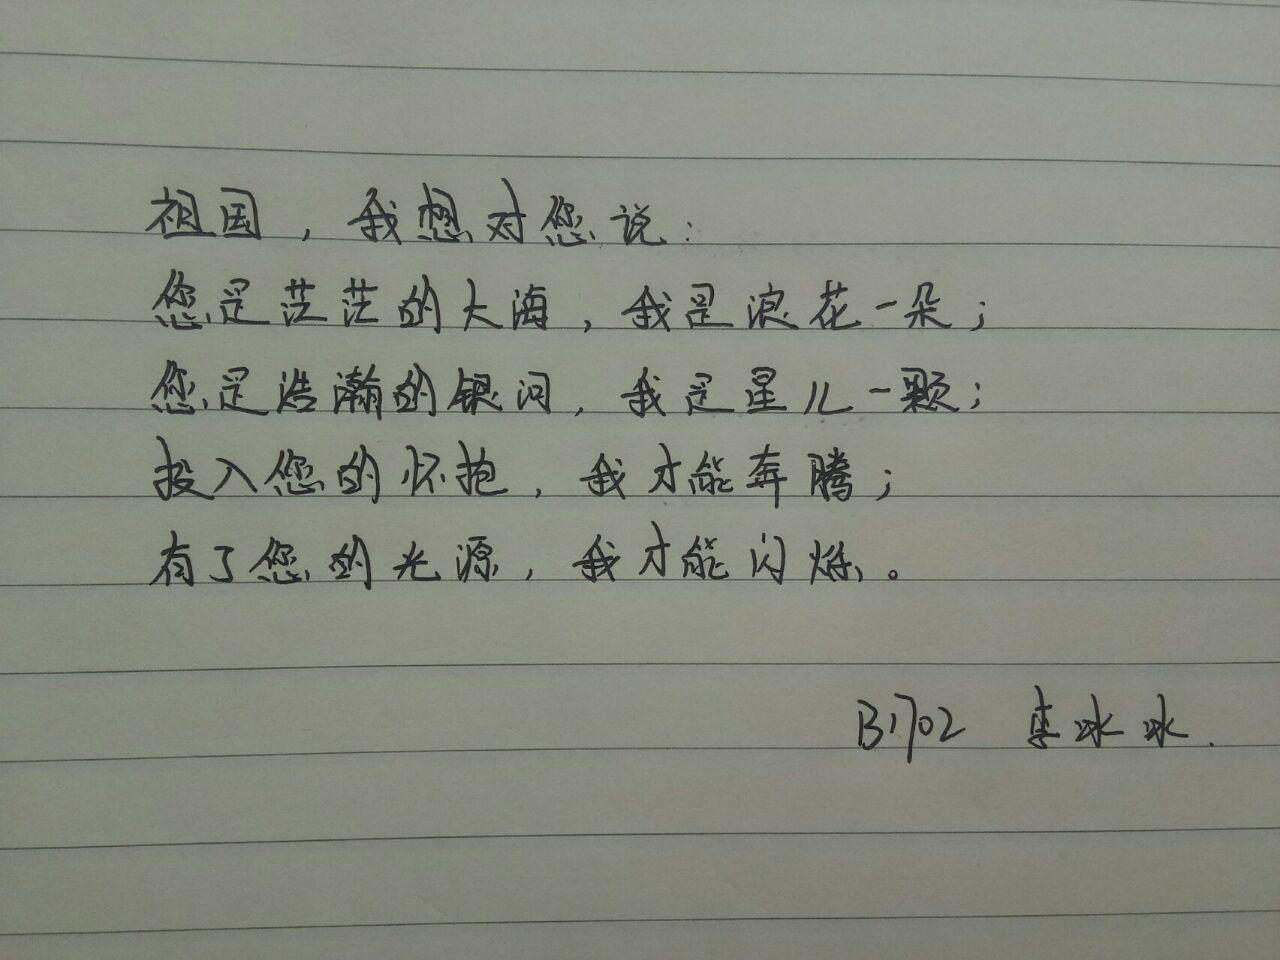 祖国，我想对您说：
您是茫茫的大海，我是浪花一朵；
您是浩瀚的银河，我是星儿一颗；
投入您的怀抱，我才能奔腾；
有了您的光源，我才能闪烁。
B1702 李冰冰.